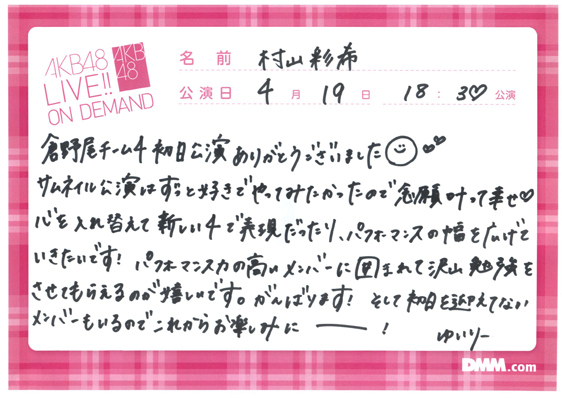 AKB48
LIVE!!
ON DEMAND
AKB
48
名前 村山彩希
公演日 4月19日 18:30公演
倉野尾チーム4初日公演ありがとうございました
サムネイル公演はずっと好きでやってみたかったので念願叶って幸せ♡
心を入れ替えて新しい4で表現だったり、パフォーマンスの幅を広げて
いきたいです! パフォーマンス力の高いメンバーに囲まれて沢山勉強を
させてもらえるのが嬉しいです。がんばります! そして初日を迎えてない
メンバーもいるのでこれからお楽しみにー!
ゆいりー
DMM.com